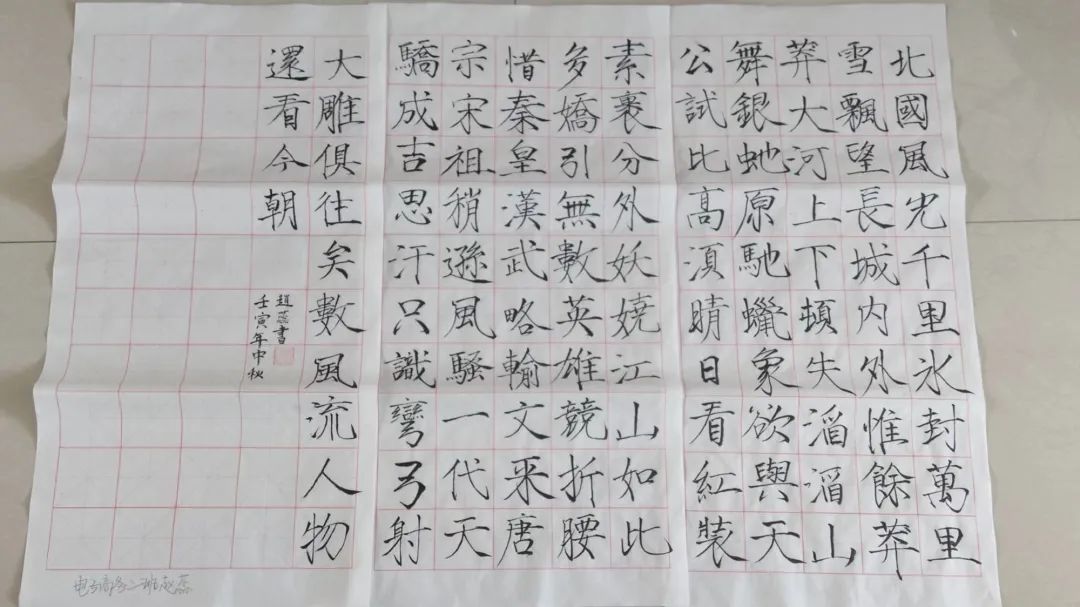 北國風光千里氷封萬里
雪飄望長城内外惟餘莽
莽大河上下頓失滔滔山
舞銀虵原馳蠟象欲與天
公試比高須晴日看紅裝
素裹分外妖嬈江山如此
多嬌引無數英雄競折腰
惜秦皇漢武略輸文采唐
宗宋祖稍遜風騷一代天
驕成吉思汗只識彎弓射
大雕俱往矣數風流人物
還看今朝
趙蕊書
壬寅年中秋
电子商务二班赵蕊